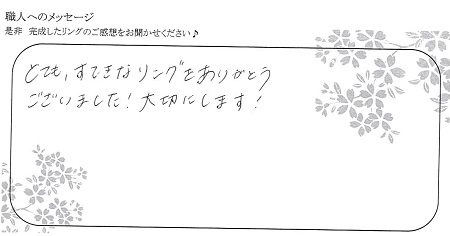 職人へのメッセージ
是非 完成したリングのご感想をお聞かせください♪
とても、すてきなリングをありがとう
ございました！大切にします！